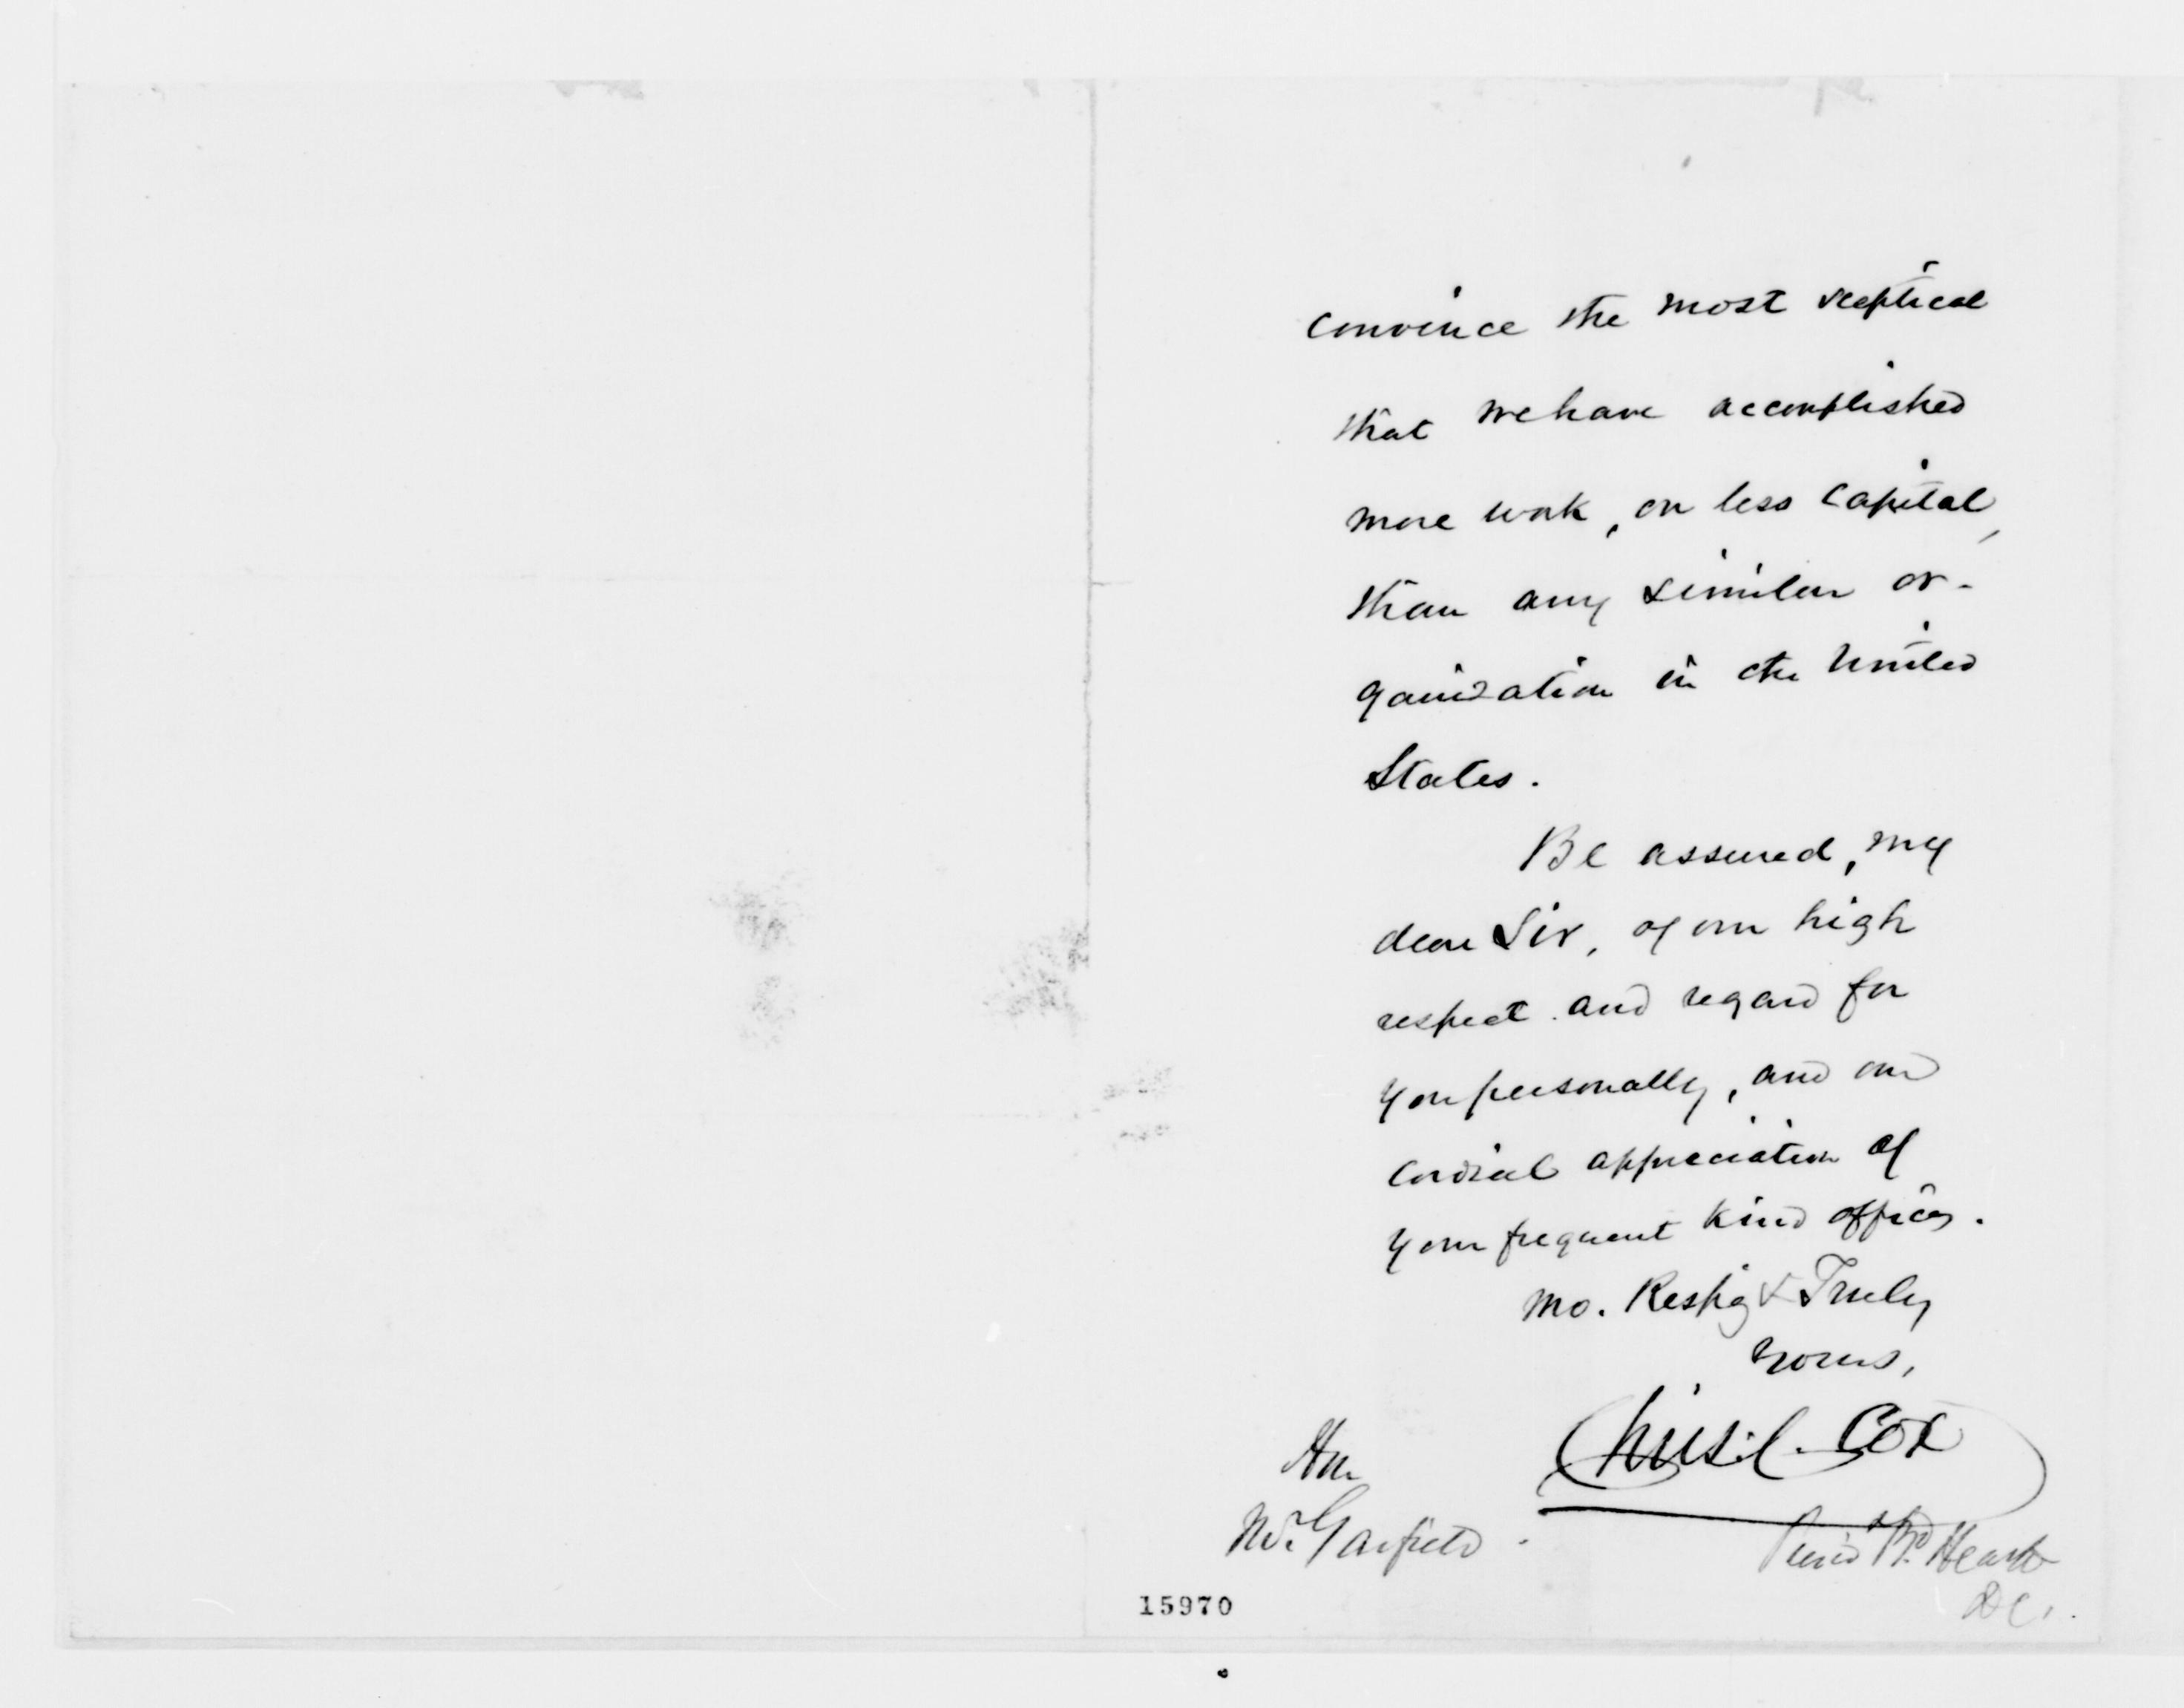 convince the most sceptical
that we have accomplished
more work, on less capital,
than any similar or-
ganization in the United
States.
Be assured, my
dear Sir, of our high
respect and regard for
you personally, and our
cordial appreciation of
your frequent kind offices.
Mo. Respy & Truly
Yours,
Chris. C. Cox
Hon
Mr. Garfield.
Presid Bd. Health
DC.
15970